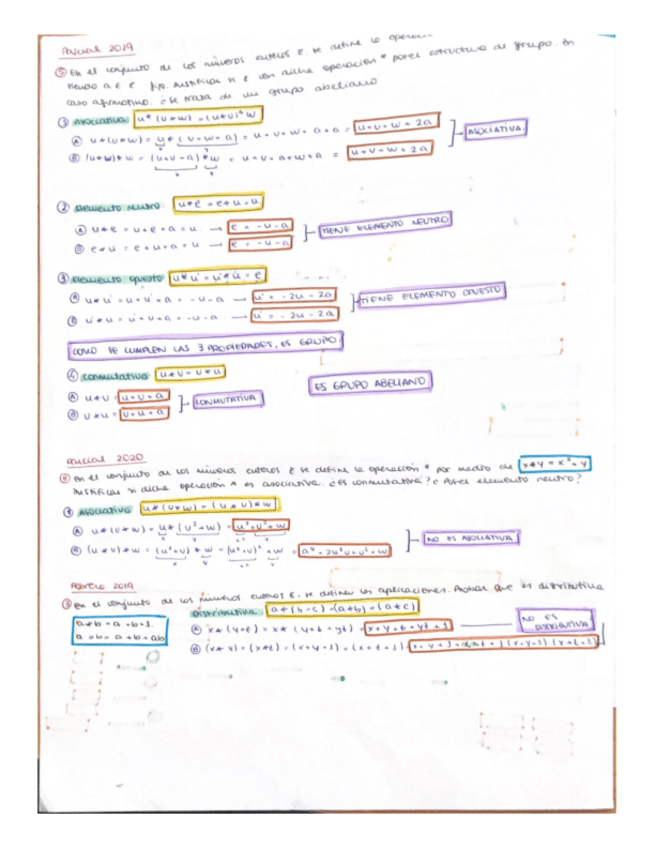 Parcial 2019
⑤ En el conjunto de los números enteros E. se define la
siendo a ∈ E fijo. Justificar si E con dicha operación * posee estructura de grupo. En
caso afirmativo. ¿Se trata de un grupo abeliano
① Asociativa: u*(v*w) = (u*v)*w
Ⓐ u*(v*w) = u*(v+w+a) = u+v+w+a+a = u+v+w+2a
ASOCIATIVA
Ⓑ (u*v)*w = (u+v+a)*w = u+v+a+w+a = u+v+w+2a
② Elemento neutro: u*e = e*u = u
Ⓐ u*e = u+e+a = u → e = -u-a
TIENE ELEMENTO NEUTRO
Ⓑ e*u = e+u+a = u → e = -u-a
③ Elemento opuesto u*u' = u'*u = e
Ⓐ u*u' = u+u'+a = -u-a → u' = -2u-2a
TIENE ELEMENTO OPUESTO
Ⓑ u'*u = u'+u+a = -u-a → u' = -2u-2a
COMO SE CUMPLEN LAS 3 PROPIEDADES, ES GRUPO
④ Conmutativa: u*v = v*u
ES GRUPO ABELIANO
Ⓐ u*v = u+v+a
CONMUTATIVA
Ⓑ v*u = v+u+a
Parcial 2020
En el conjunto de los números enteros E se define la operación * por medio de x*y = x²+y
Justificar si dicha operación * es asociativa. ¿Es conmutativa? ¿Posee elemento neutro?
① Asociativa u*(v*w) = (u*v)*w
Ⓐ u*(v*w) = u*(v²+w) = u²+v²+w
NO ES ASOCIATIVA
Ⓑ (u*v)*w = (u²+v)*w = (u²+v)²+w = u⁴+2u²v+v²+w
Febrero 2019
En el conjunto de los números enteros E. se definen las aplicaciones. Probar que es distributiva
a*b = a+b+1
a∘b = a+b+ab
Distributiva
NO ES DISTRIBUTIVA